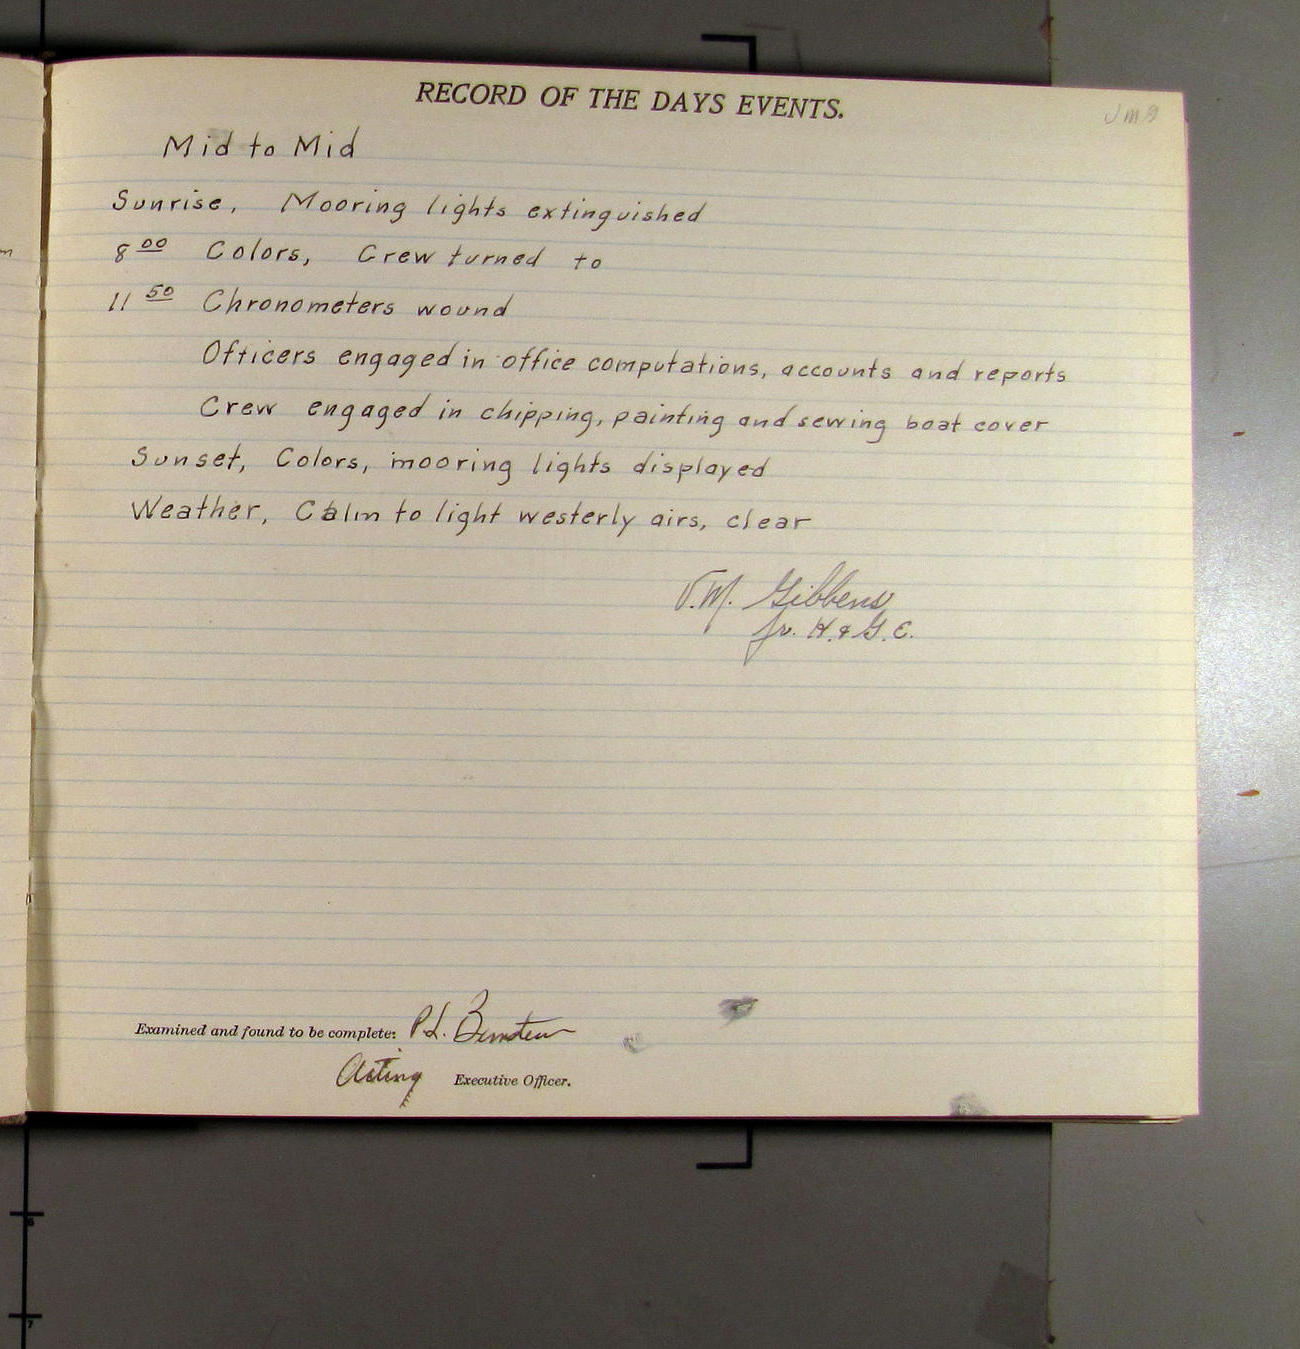 RECORD OF THE DAYS EVENTS.
Mid to Mid
Sunrise, Mooring lights extinguished
8 00 Colors, Crew turned to
11 50 Chronometers wound
Officers engaged in office computations, accounts and reports
Crew engaged in chipping, painting and sewing boat cover
Sunset, Colors, mooring lights displayed
Weather, Calm to light westerly airs, clear
V.M. Gibbens
Jr. H. & G. E.
Examined and found to be complete: P.L. Bernstein
Acting Executive Officer.